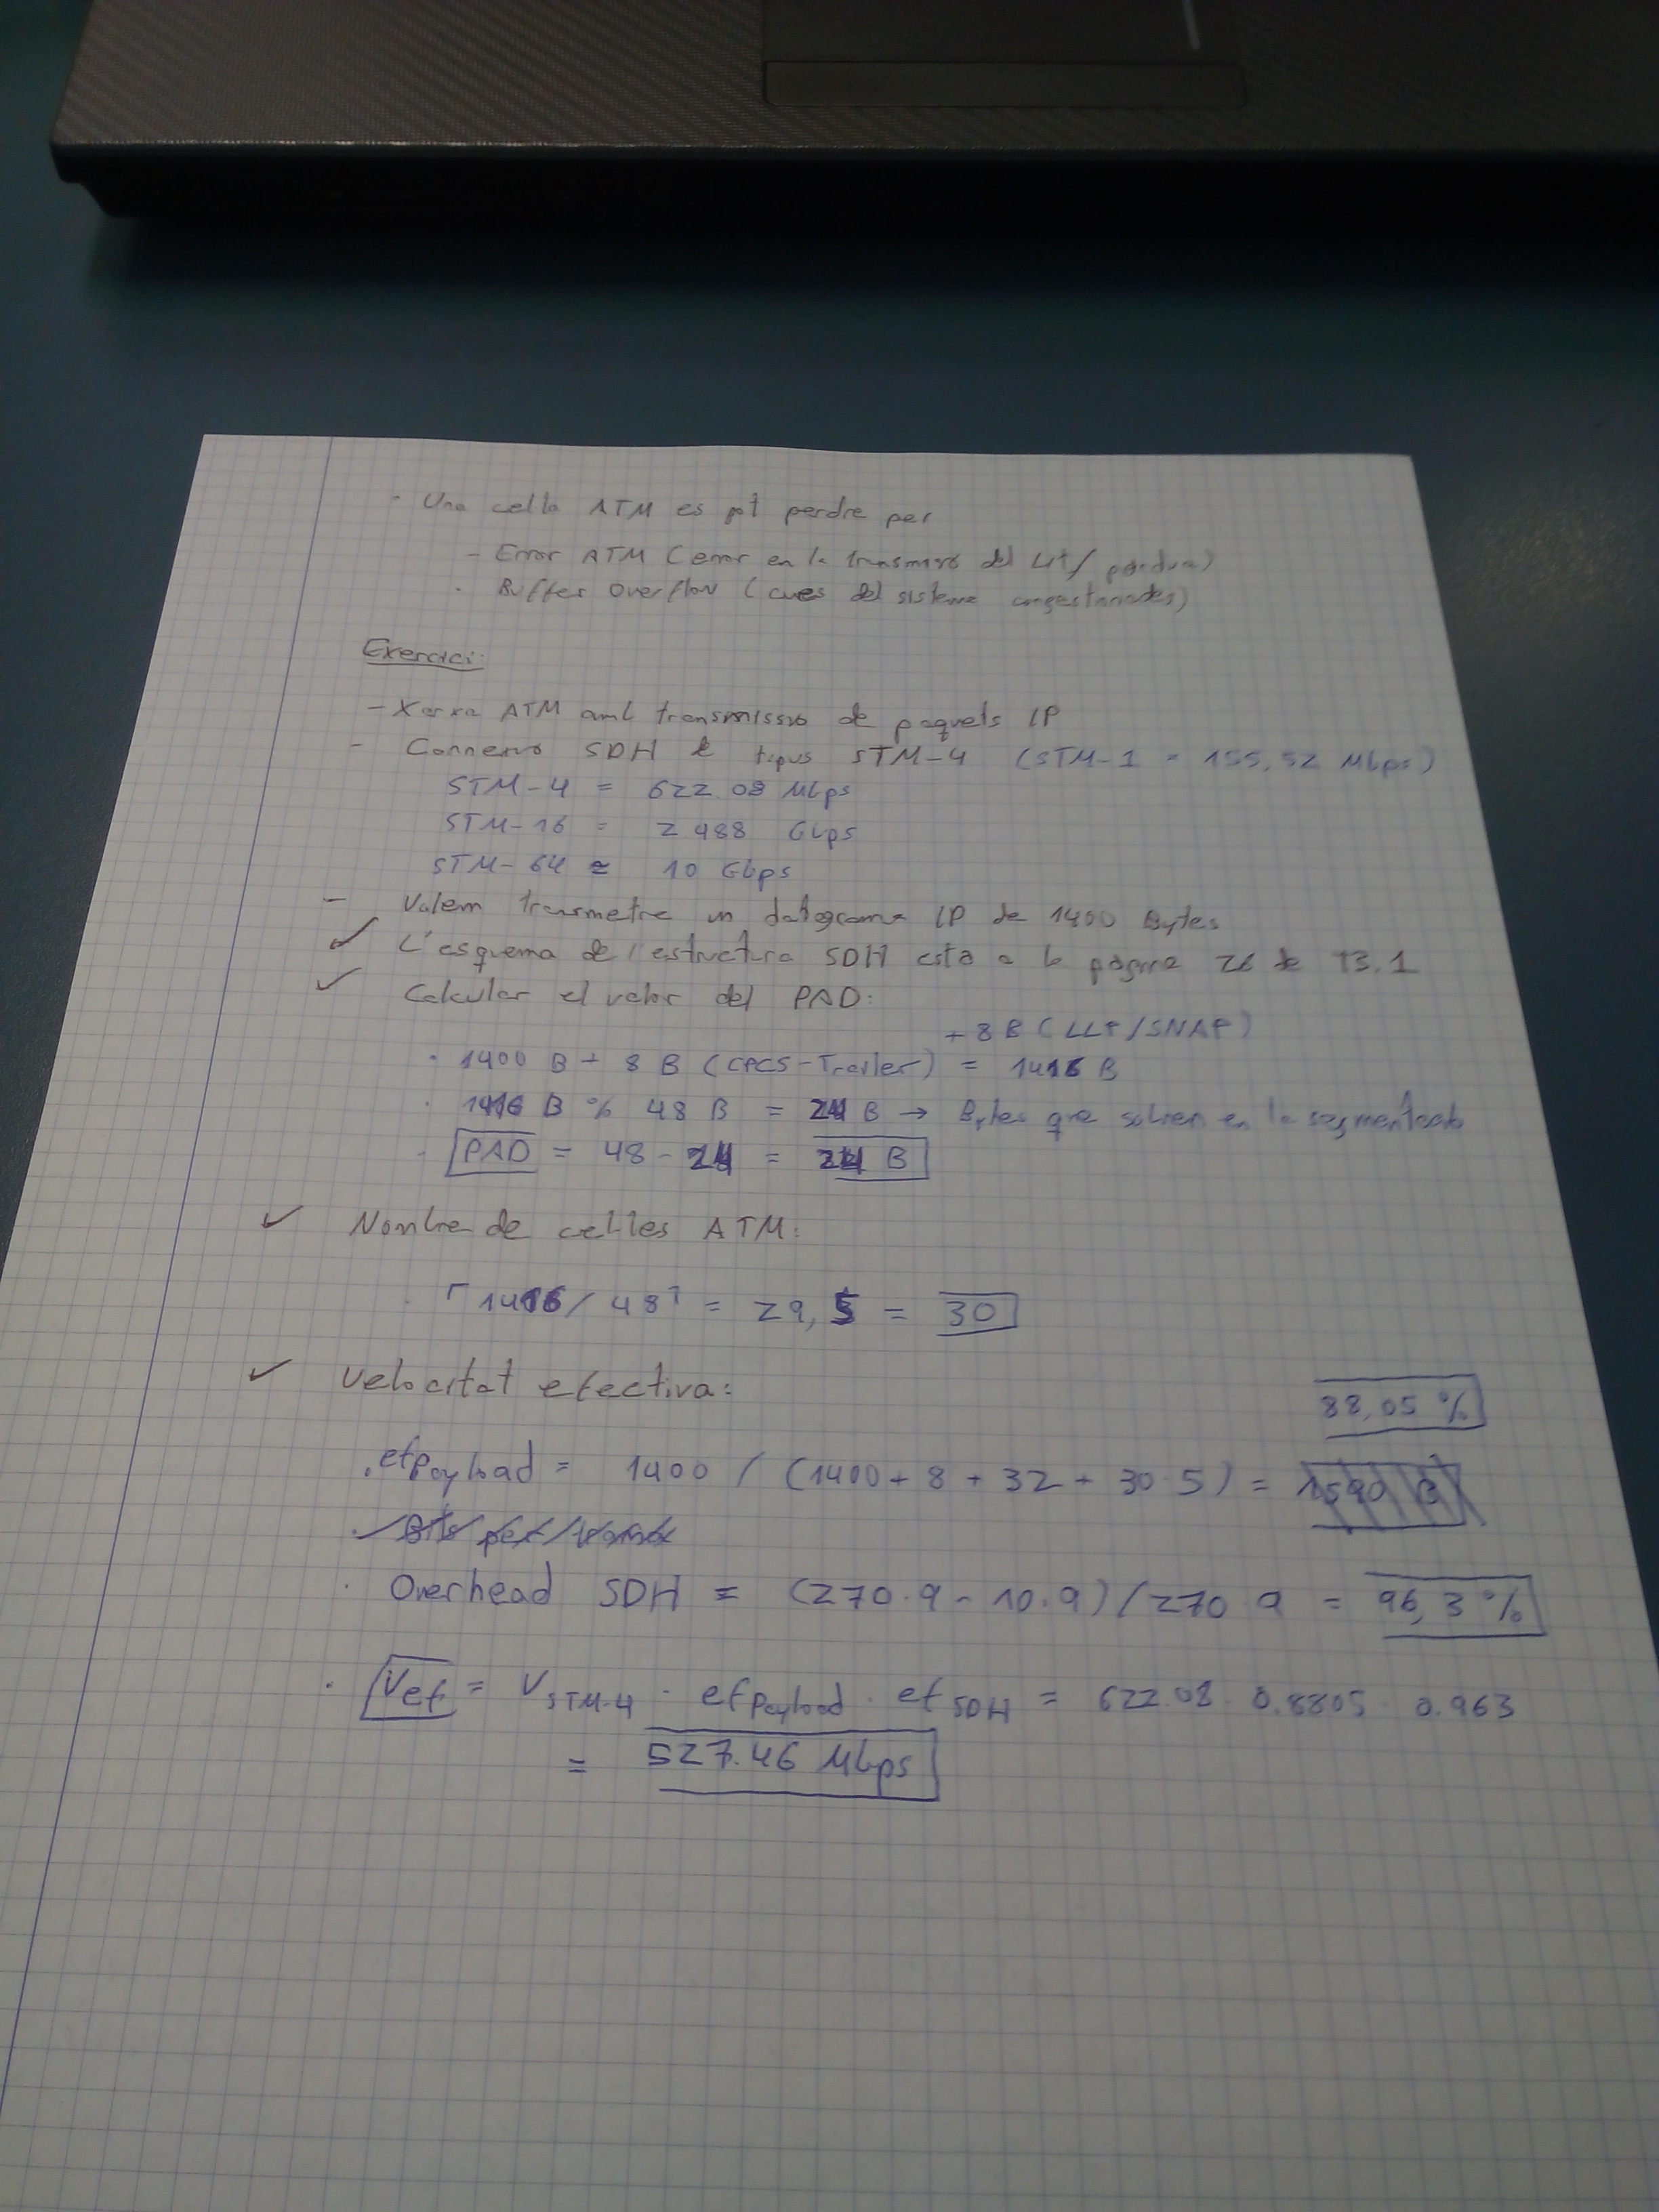 · Una cel·la ATM es pot perdre per
- Error ATM (error en la transmissió del bit / pèrdua)
· Buffer Overflow (cues del sistema congestionades)
Exercici:
- Xarxa ATM amb transmissió de paquets IP
- Connexió SDH de tipus STM-4 (STM-1 = 155,52 Mbps)
STM-4 = 622.08 Mbps
STM-16 = 2 488 Gbps
STM-64 ≈ 10 Gbps
- Volem transmetre un datagrama IP de 1400 Bytes
✓ L'esquema de l'estructura SDH esta a la pàgina 26 de T3.1
✓ Calcular el valor del PAD:
+ 8 B (LLC/SNAP)
· 1400 B + 8 B (CPCS-Trailer) = 1416 B
· 1416 B % 48 B = 24 B → Bytes que sobren en la segmentació
· PAD = 48 - 24 = 24 B
✓ Nombre de cel·les ATM:
· ⌈1416 / 48⌉ = 29,5 = 30
✓ Velocitat efectiva:
88,05 %
· efPayload = 1400 / (1400 + 8 + 32 + 30·5) = 1590 B
· Overhead SDH = (270·9 - 10·9) / 270·9 = 96,3 %
· Vef = VSTM-4 · efPayload · efSDH = 622.08 · 0.8805 · 0.963
= 527.46 Mbps